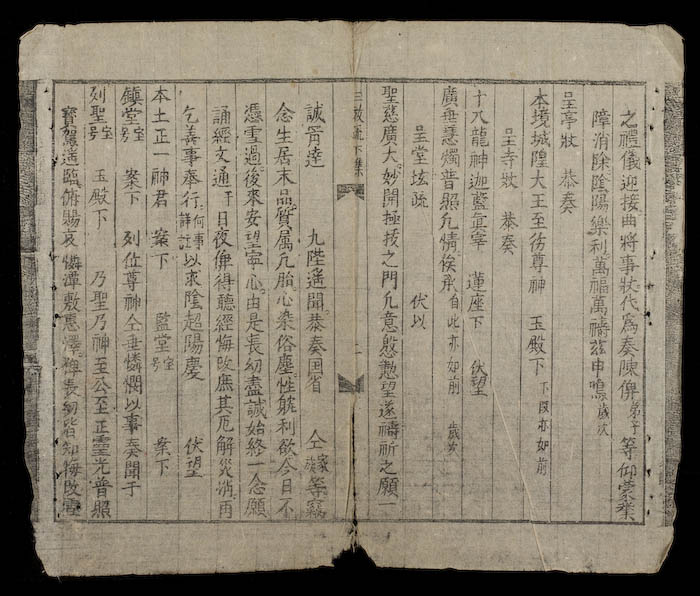 之禮儀迎接曲將事狀代為奏陳俾弟子等仰蒙業
障消除陰陽樂利萬福萬禱茲申鳴歲次
呈亭狀 恭奏
本境城隍大王至彷尊神 玉殿下 下段亦如前
呈寺狀 恭奏
十八龍神迦藍眞宰 蓮座下 伏望
廣垂慧燭普照凢情俟承自此亦如前 歲次
呈堂坛疏 伏以
聖慈廣大妙開極援之門凢意慇懃望遂禱祈之願一
誠胥達 九陛遥聞恭奏囯省 仝家族等竊
念生居末品質属凢胎心染俗塵性躭利欲今日不
憑雪過後來安望寧心由是長幼盡誠始終一念願
誦經文通于日夜俾得聽經悔改庶其厄解災消再
乞善事舉行何事詳註以求陰超陽慶 伏望
本土正一神君 案下 監堂室号 案下
鎮堂室号 案下 列位尊神仝垂憐憫以事奏聞于
列聖室号 玉殿下 乃聖乃神至公至正靈光普照
寳駕遥臨俯賜哀憐潭敷恵澤俾長幼皆知悔改雪